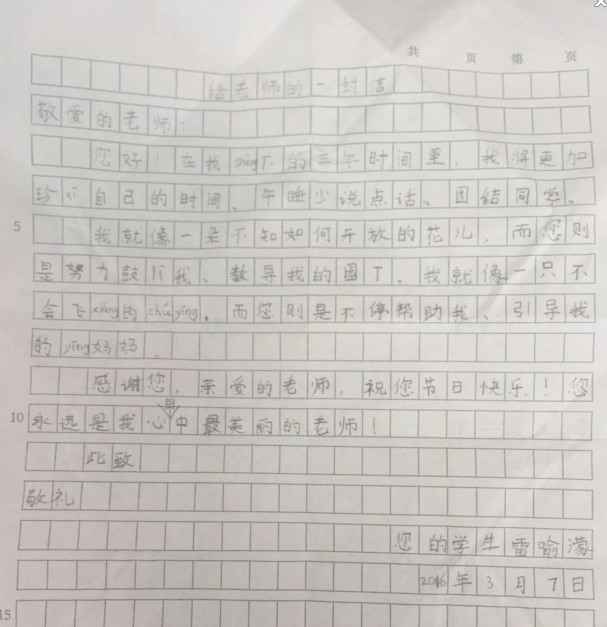 共 页 第 页
给老师的一封信
敬爱的老师：
您好！在我shèng下的三年时间里，我将更加
珍惜自己的时间、午睡少说点话、团结同学。
5 我就像一朵不知如何开放的花儿，而您则
是努力鼓励我、教导我的园丁。我就像一只不
会飞xiáng的chúyīng，而您则是不停帮助我、引导我
的yīng妈妈。
感谢您，亲爱的老师，祝您节日快乐！您
10 永远是我心目中最美丽的老师！
此致
敬礼
您的学生雷喻濛
2016年3月7日
15